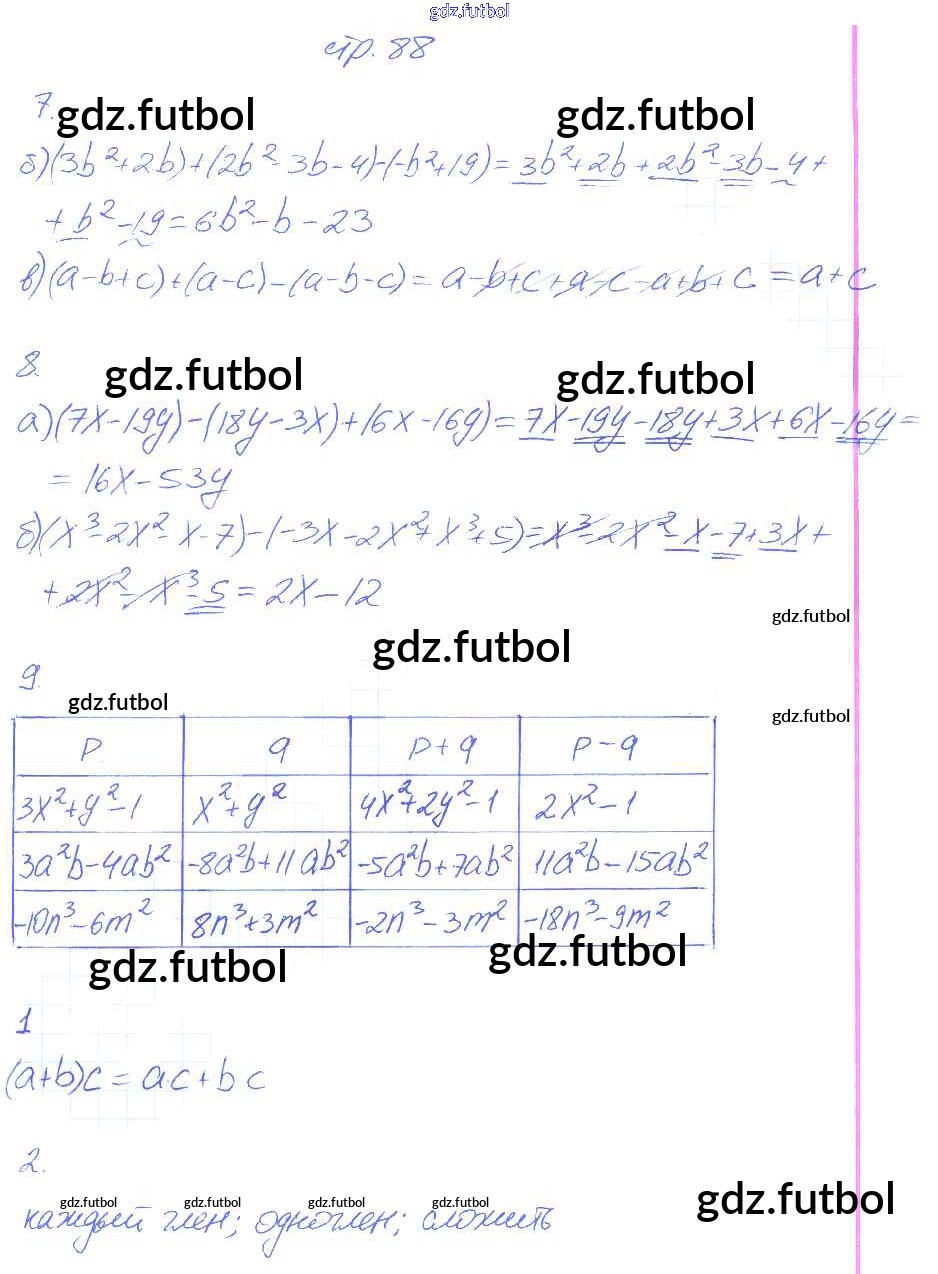 gdz.futbol
стр. 88
7. gdz.futbol gdz.futbol
б) (3b²+2b)+(2b²-3b-4)-(-b²+19) = 3b²+2b+2b²-3b-4+
+b²-19 = 6b²-b-23
в) (a-b+c)+(a-c)-(a-b-c) = a-b+c+a-c-a+b+c = a+c
8. gdz.futbol gdz.futbol
а) (7x-19y)-(18y-3x)+(6x-16y) = 7x-19y-18y+3x+6x-16y =
= 16x-53y
б) (x³-2x²-x-7)-(-3x-2x²+x³+5) = x³-2x²-x-7+3x+
+2x²-x³-5 = 2x-12
gdz.futbol
gdz.futbol
9.
gdz.futbol gdz.futbol
p q p+q p-q
3x²+y²-1 x²+y² 4x²+2y²-1 2x²-1
3a²b-4ab² -8a²b+11ab² -5a²b+7ab² 11a²b-15ab²
-10n³-6m² 8n³+3m² -2n³-3m² -18n³-9m²
gdz.futbol gdz.futbol
1
(a+b)c = ac+bc
2.
gdz.futbol gdz.futbol gdz.futbol gdz.futbol gdz.futbol
каждый член; одночлен; сложить